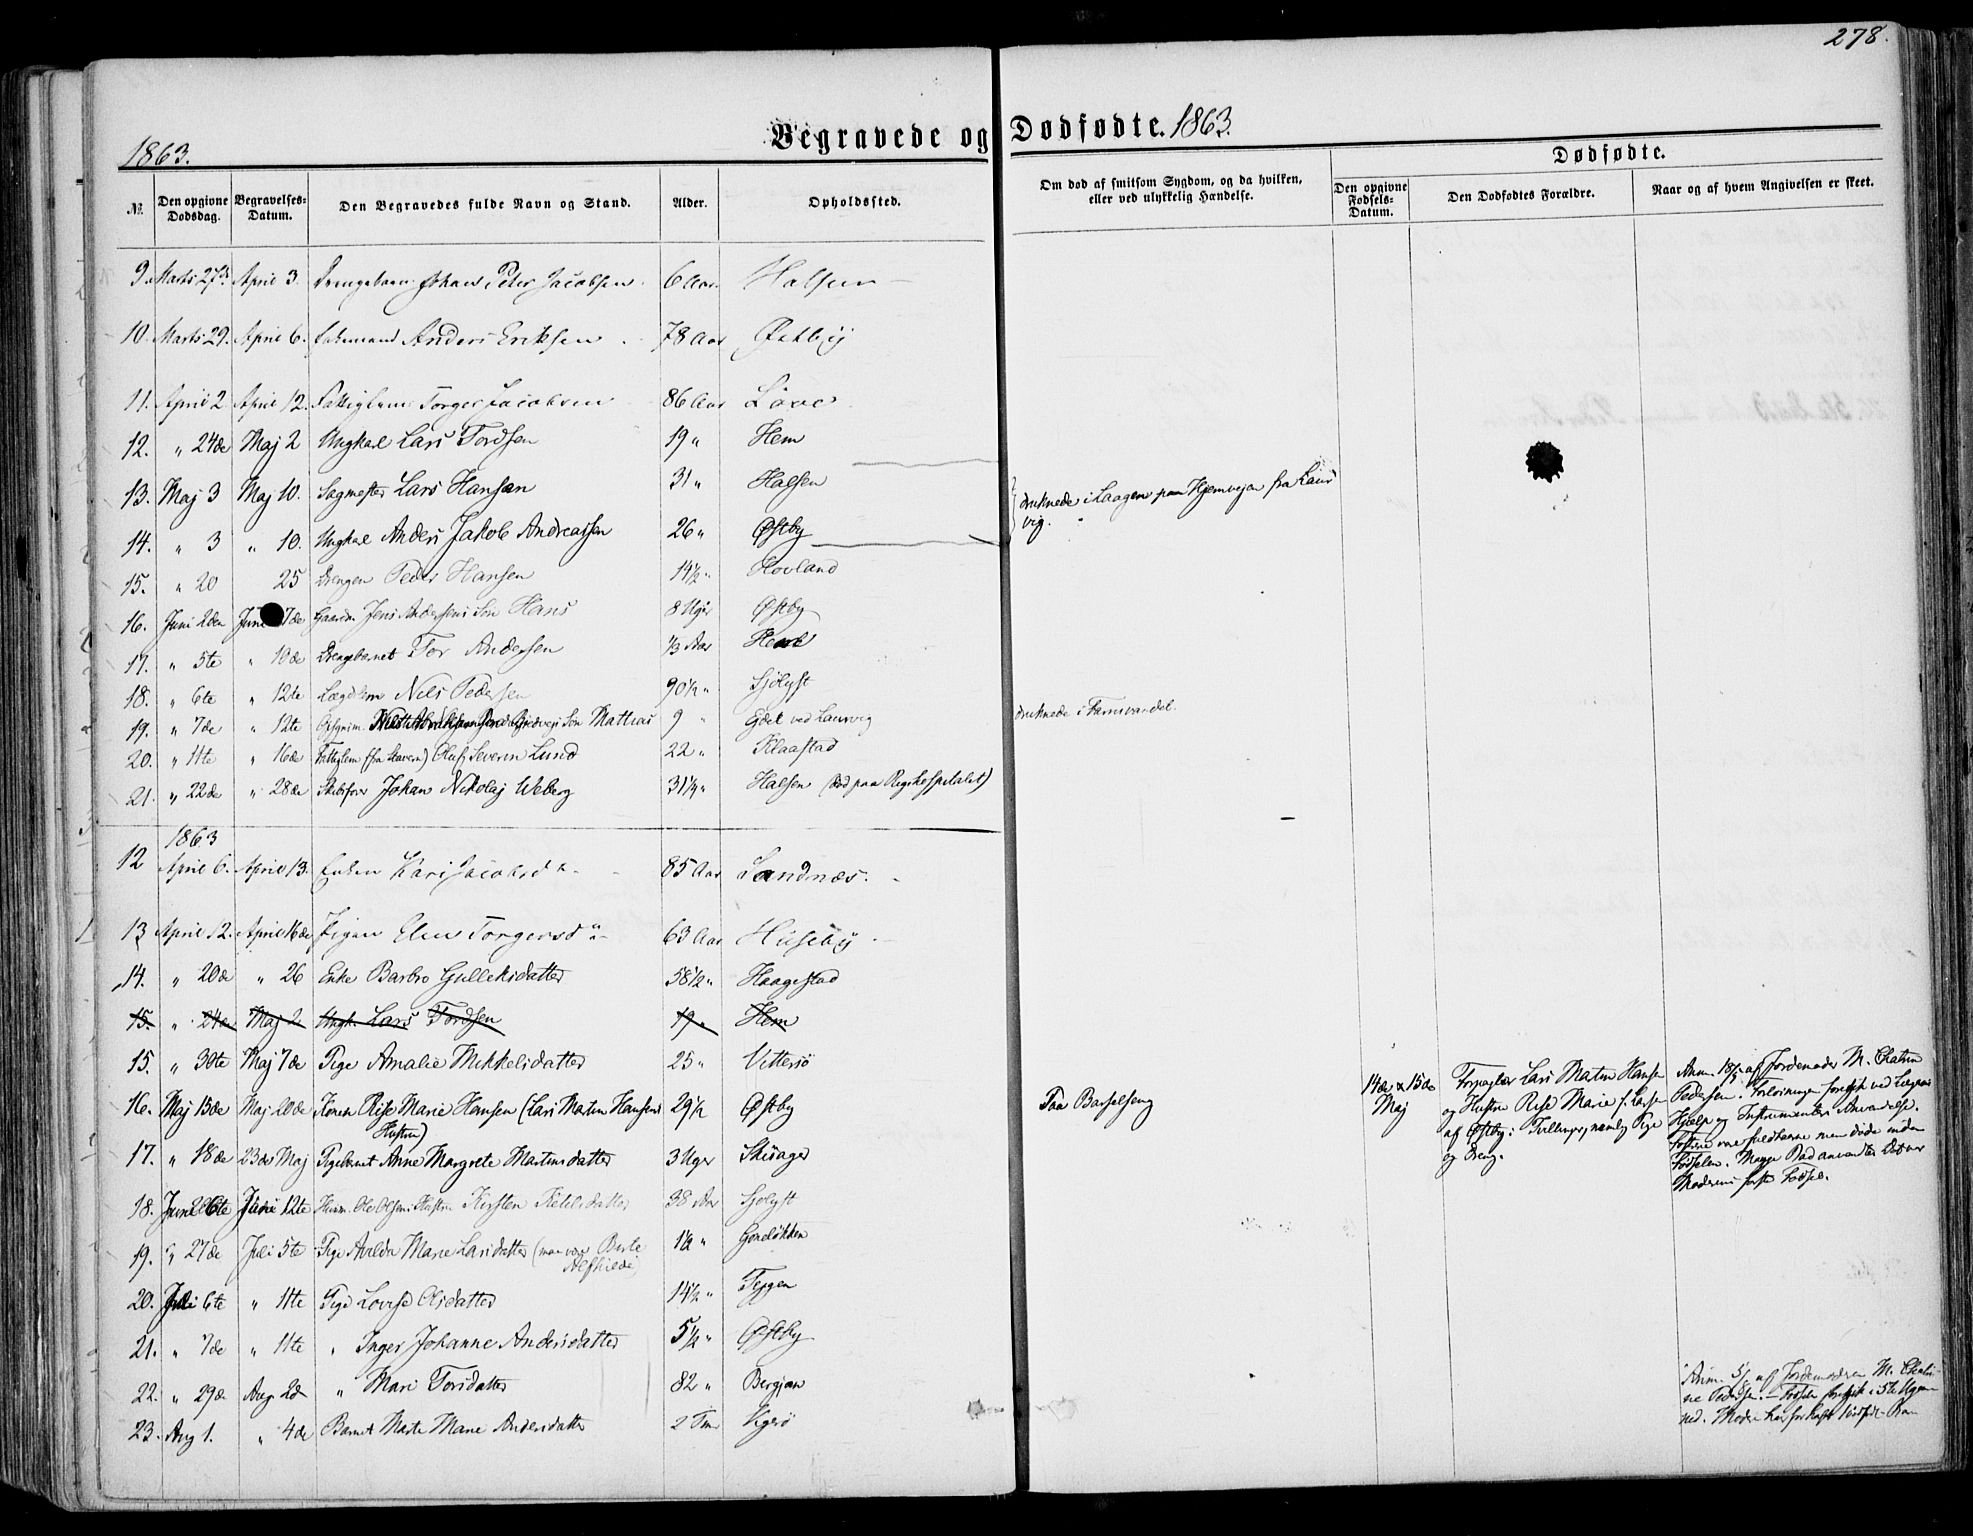 278.
1863. Begravede og Dødfødte. 1863.
Dødfødte.
№. Den opgivne Dødsdag. Begravelses-Datum. Den Begravedes fulde Navn og Stand. Alder. Opholdssted. Om død af smitsom Sygdom, og da hvilken, eller ved ulykkelig Hændelse. Den opgivne Fødsels-Datum. Den Dødfødtes Forældre. Naar og af hvem Angivelsen er skeet.
9. Marts 27de April 3. Drengebarn Johan Peter Jacobsen 6 Aar Halsen
10. Marts 29. April 6. Enkemand Anders Eriksen 78 Aar Østby
11. April 2 April 12. Fattiglem Torger Jacobsen 86 Aar Löve
12. " 24de Maj 2 Ungkarl Lars Tordsen 19 " Hem
13. Maj 3 Maj 10. Sagmester Lars Hansen 31 " Halsen druknede i Laagen paa Hjemveien fra Laur
vig.
14. " 3 " 10. Ungkarl Anders Jakob Andreassen 26 " Østby
15. " 20 25 Drengen Peder Hansen 14½ " Hovland
16. Juni 2den Juni 7de Gaardm. Jens Andersens Søn Hans 8 Uger Østby
17. " 5te " 10de Drengebarnet Tor Andersen ⅓ Aar
18. " 6te " 12te Lægdslem Nils Pedersen 90½ " Sjölyst
19. " 7de " 12te Søn Mattias 9 " ved Laurvig druknede i Farrisvandet.
20. " 11te " 16de Fattiglem (fra Stavern) Oluf Severin Lund 22 " Klaastad
21. " 22de " 28de Skibsfører Johan Nikolaj Weberg 31¼ " Halsen (død paa Rigshospitalet)
1863
12 April 6. April 13. Enken Kari Jacobsd. 85 Aar Sandnæs.
13 April 12. April 16de Pigen Elen Torgersd. 63 Aar Huseby
14. " 20de " 26 Enke Barbro Gulleksdatter 58½ " Haagestad
15. " 24de Maj 2 Ungk. Lars Tordsen 19 " Hem
15. " 30te Maj 7de Pige Amalie Mikkelsdatter 25 " Vittersö
16. Maj 15de Maj 20de Konen Rise Marie Hansen (Lars Martin Hansens 29½ Østby Paa Barselseng 14de & 15de Forpagter Lars Martin Hansen
Hustru) Maj og Hustru Rise Marie f. Larsen
af Østby: Tvillinger, nemlig Pige
og Dreng.
Anm. 18/5 af Jordemoder M. Chatrin
Pedersen. Forlösningen foregik ved Læge
Hjælp og Instrumenters Anvendelse.
Fostrene vare fuldbaarne men döde inden
Födselen. Det var
Moderens förste Födsel.
17. " 18de 23de Maj Pigebarnet Anne Margrete Martinsdatter 3 Uger Skisager
18. Juni 6te Juni 12te Huusm. Ole Olsens Hustru Kirsten Ketilsdatter 38 Aar Sjölyst
19. " 27de Juli 5te Pige Avilda Marie Larsdatter 1½ "
20. Juli 6te " 11te Pige Lovise Olsdatter 14½ " Teigen
21. " 7de " 11te " Inger Johanne Andersdatter 5½ " Østby
22. " 29de Aug. 2d " Mari Torsdatter 82 " Bergjan
23. Aug 1. " 4de Barnet Marte Marie Andersdatter 2 Tim Vigersö
Anm. af Jordemoderen M. Chatri
ne Pedersen. Födselen foregik i
ned. Moder har forhen